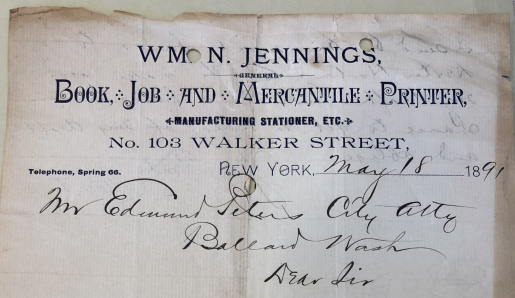 WM. N. JENNINGS,
GENERAL
BOOK, JOB AND MERCANTILE PRINTER,
MANUFACTURING STATIONER, ETC.
No. 103 WALKER STREET,
Telephone, Spring 66.
NEW YORK, May 18 1891
Mr Edmund Peters City Atty
Ballard Wash
Dear Sir